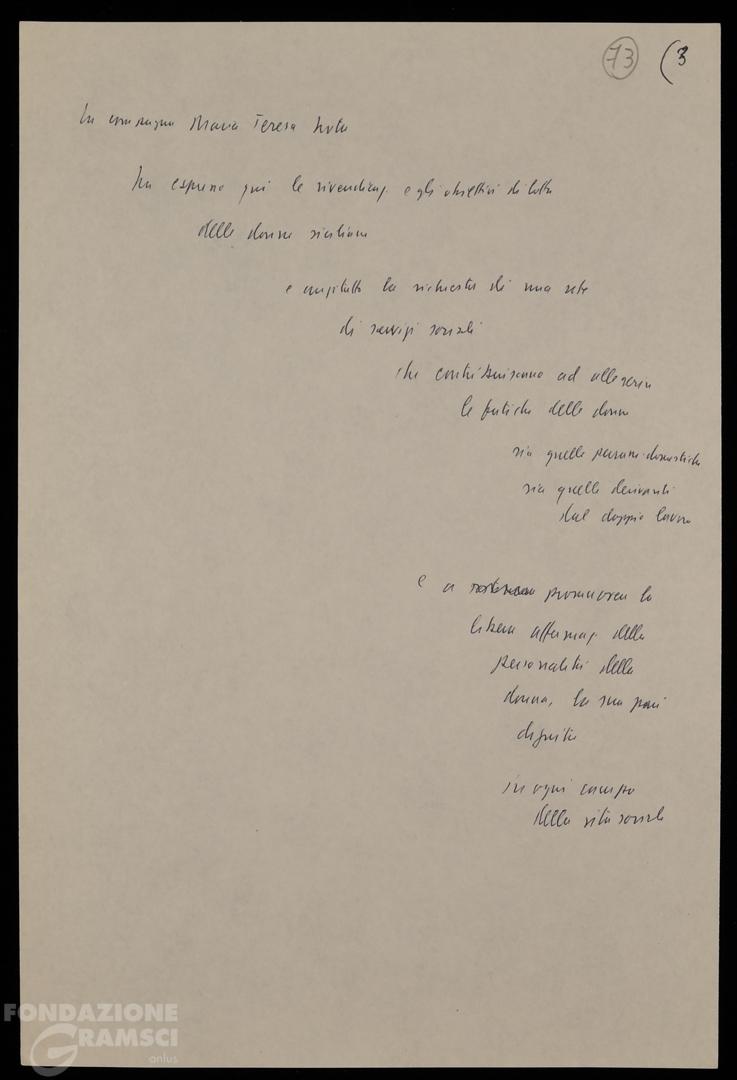 73 (3
La compagna Maria Teresa Noto
ha espresso qui le rivendicaz. e gli obiettivi di lotta
delle donne siciliane
e anzitutto la richiesta di una rete
di servizi sociali
che contribuiscano ad alleggerire
le fatiche delle donne
sia quelle domestiche
sia quelle derivanti
dal doppio lavoro
e a promuovere la
libera affermaz. della
personalità della
donna, la sua pari
dignità
in ogni campo
della vita sociale
FONDAZIONE
GRAMSCI
onlus